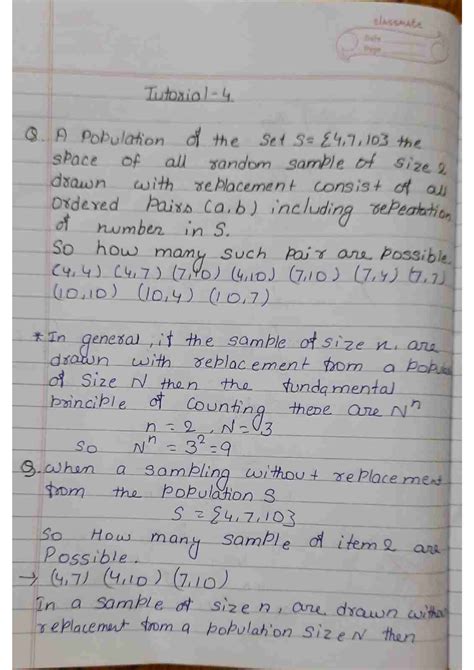 classmate
Date
Page
Tutorial-4
Q. A Population of the Set S = {4,7,10} the
space of all random sample of size 2
drawn with replacement consist of all
ordered Pairs (a,b) including repeatation
of number in S.
So how many such pair are possible
(4,4) (4,7) (7,10) (4,10) (7,10) (7,4) (7,7)
(10,10) (10,4) (10,7)
* In general, if the sample of size n, are
drawn with replacement from a popula
of Size N then the fundamental
principle of counting there are Nⁿ
n = 2, N = 3
So Nⁿ = 3² = 9
Q. When a sampling without replacement
from the population S
S = {4,7,10}
So How many sample of item 2 are
Possible.
→ (4,7) (4,10) (7,10)
In a sample of size n, are drawn without
replacement from a population Size N then